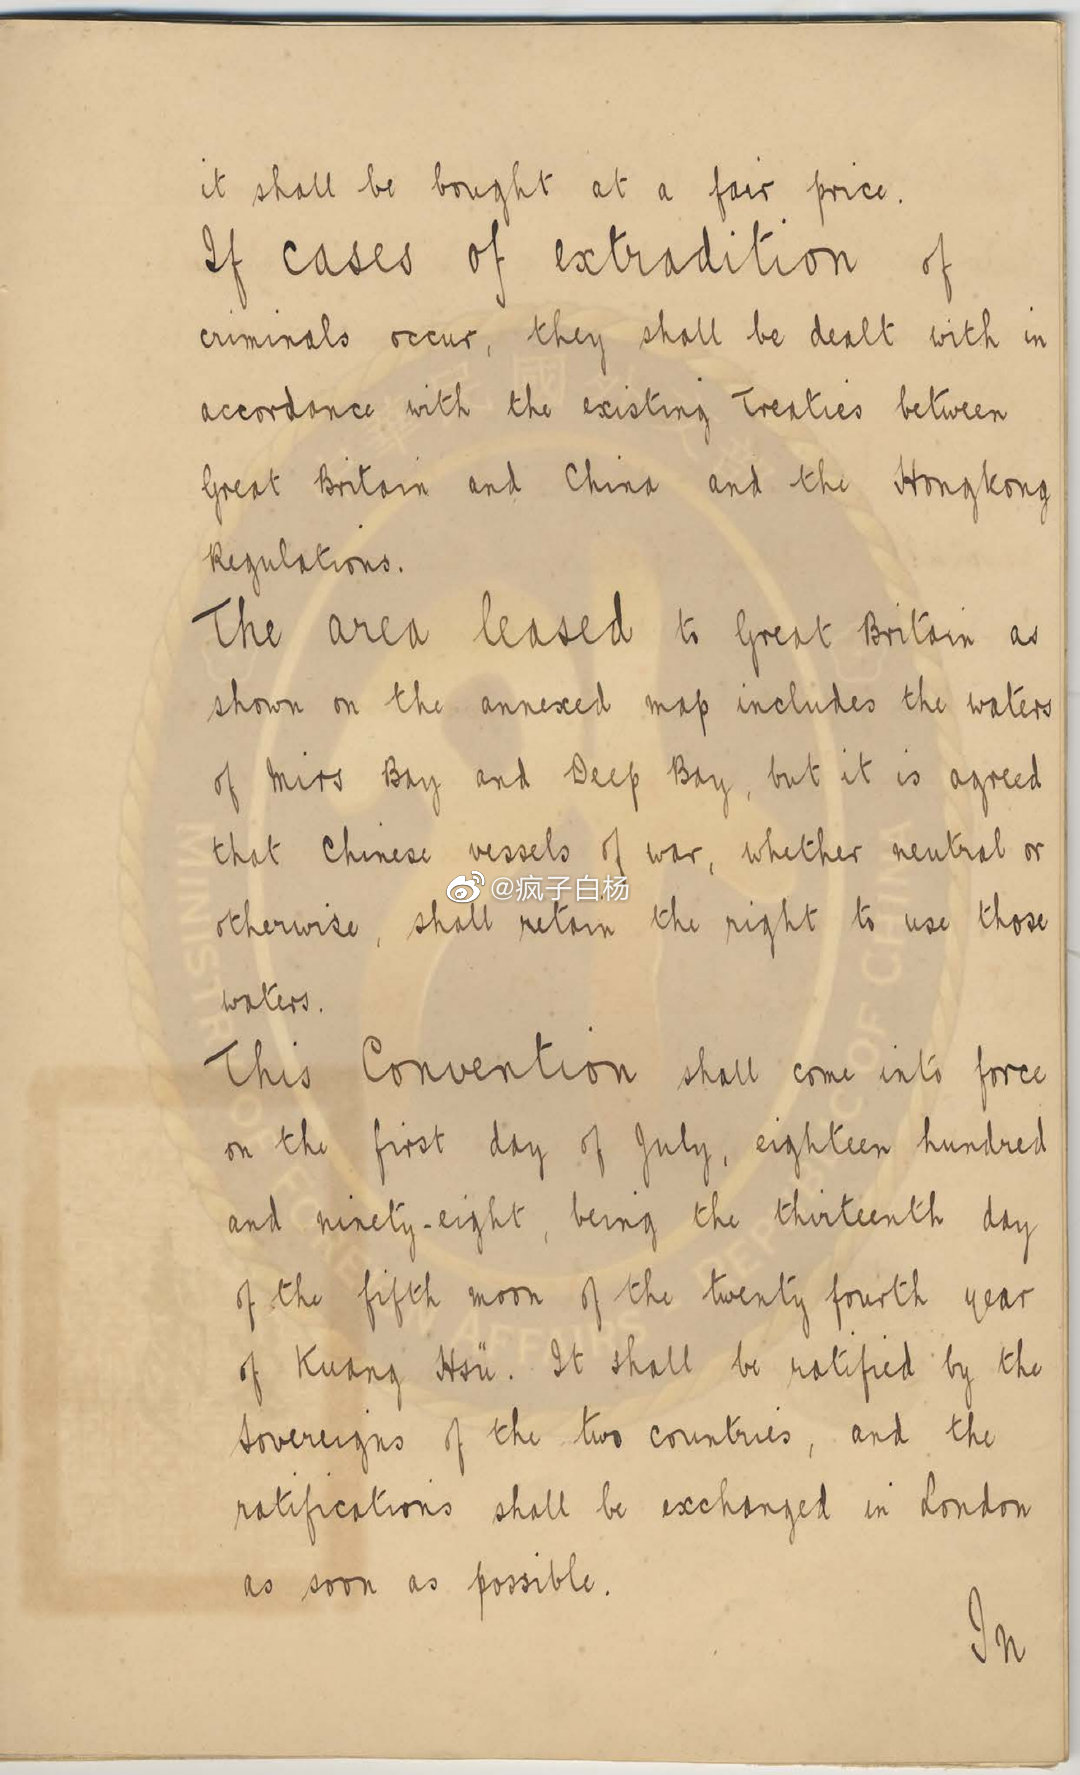 it shall be bought at a fair price.
If cases of extradition of
criminals occur, they shall be dealt with in
accordance with the existing Treaties between
Great Britain and China and the Hongkong
Regulations.
The area leased to Great Britain as
shown on the annexed map includes the waters
of Mirs Bay and Deep Bay, but it is agreed
that Chinese vessels of war, whether neutral or
@疯子白杨
otherwise, shall retain the right to use those
waters.
This Convention shall come into force
on the first day of July, eighteen hundred
and ninety-eight, being the thirteenth day
of the fifth moon of the twenty fourth year
of Kuang Hsü. It shall be ratified by the
Sovereigns of the two countries, and the
ratifications shall be exchanged in London
as soon as possible.
In
MINISTRY OF FOREIGN AFFAIRS
REPUBLIC OF CHINA